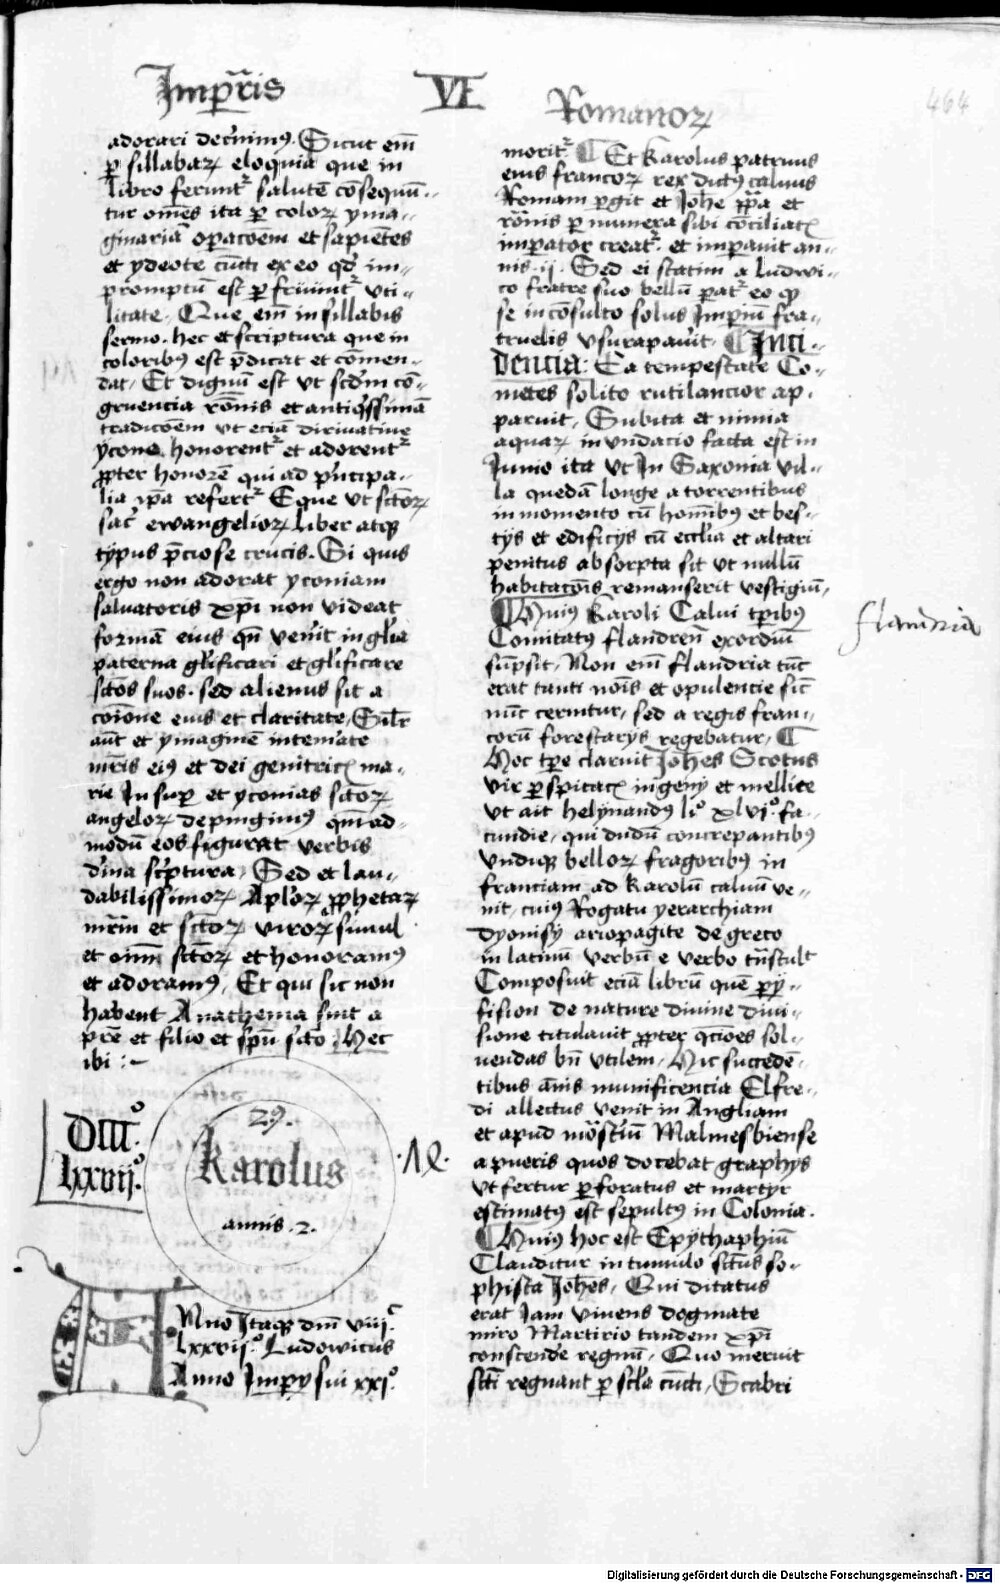 Imꝑ̄ris VI Romanoꝝ
464
adorari decˀnimꝰ. Sicut em̄
ꝑ sillabaꝝ eloquia que in
libro feruntˀ salutē cōsequū-
tur om̄es ita ꝑ coloꝝ yma-
ginariā oꝑacōem et sapiētes
et ydeote cūcti ex eo qd̛ im-
promptū est ꝑ fruūntˀ vti-
litate. Que em̄ in sillabis
sermo. hec et scriptura que in
coloribꝰ est p̄dicat et cōmen-
dat. Et dignū est vt scdm̄ cō-
gruencia rōnis et antiqˀssimā
tradicōem vt eciā dirivative
ycone honorentˀ et adorentˀ
ꝓpter honorē qui ad pˀncipa-
lia ip̄a refertˀ Eque vt sctōꝝ
sacˀ ewangelioꝝ liber atqꝫ
typus p̄ciose crucis. Si quis
ergo non adorat yconiam
salvatoris xp̄i non videat
formā eius qn̄ venˀit in glˀia
paterna glˀificari et glˀificare
sctōs suos. sed alienus sit a
cōione eius et claritate. Silˀr
aūt et ymaginē intemˀate
mr̄is eiꝰ et dei genitricˀ ma-
rie Insuꝑ et yconias sctōꝝ
angeloꝝ depingimꝰ quē ad-
modū eos figurat verbis
dˀina scˀptura. Sed et lau-
dabilissimoꝝ Aplˀoꝝ ꝓphetaꝝ
mr̄im et sctōꝝ viroꝝ simul
et oīm sctōꝝ et honoramꝰ
et adoramꝰ. Et qui sic non
habent Anathema sint a
pr̄e et filio et sp̄u sctō. Hec
ibi :-
DIII͞.º
lxxvii.º
29.
Karolus
annis .2.
.Λ e.
Anno Itaqꝫ dn̄i viijc
lxxvijº Ludowicus
Anno Impij sui xxiº.
moritˀ. ¶ Et Karolus patruus
eius francoꝝ rex dictꝰ calvus
Romam ꝑgit et Joh̄e pp̄a et
rōnis ꝑ munera sibi cōciliatˀ
imꝑator creatˀ. et imꝑavit an-
nis .ij. Sed ei statim a Ludwi-
co fratre suo bellū ꝑatˀ eo qꝫ
se incōsulto solus Imꝑiū fra-
truelis vsurapavˀit. ¶ Inci-
dencia: Ea tempestate Co-
metes solito rutilancior ap-
paruit. Subita et nimia
aquaꝝ invndacio facta est in
Junio ita vt In Saxonia vil-
la quedā longe a torrentibus
in momento cū homībꝰ et bes-
tijs et edificijs cū ecclˀia et altari
penitus absorpta sit vt nullū
habitacōnis remanserit vestigiū.
¶ Huiꝰ Karoli Calvi tp̄ribꝰ
Comitatꝰ flandreñ exordiū
sūpsit. Non em̄ flandria tūc
erat tanti nōis et opulencie sicˀ
nūc cernitur, sed a regis fran-
corū forestarijs regebatur. ¶
Hoc tp̄e claruit Joh̄es Scotus
vir ꝑspicacˀ ingenij et mellite
vt ait helynandꝰ liº xlvjº fa-
cundie, qui dudū concrepantibꝰ
vndiqꝫ belloꝝ fragoribꝰ in
franciam ad Karolū calvū ve-
nit, cuiꝰ Rogatu yerarchiam
Dyonisij ariopagite de greco
in latinū verbū e verbo tˀnstulit
Composuit eciā librū quē ꝑij-
fision de nature divine divi-
sione titulavit ꝓpter q̄stiōes sol-
vendas bn̄ vtilem. Hic succedē-
tibus ānis munificencia Elfre-
di allectus venit in Angliam
et apud mōstˀiū Malmesbiense
a pueris quos docebat graphijs
vt fertur ꝑforatus et martyr
estimatꝰ est sepultꝰ in Colonia.
¶ Huiꝰ hoc est Epythaphiū
Clauditur in tumulo sctūs so-
phista Joh̄es. Qui ditatus
erat Jam vivens dogmate
miro Martirio tandem xp̄i
conscendˀe regnū. Quo meruit
sctī regnant ꝑ sclˀa cūcti. Scabri
flandria
Digitalisierung gefördert durch die Deutsche Forschungsgemeinschaft - DFG